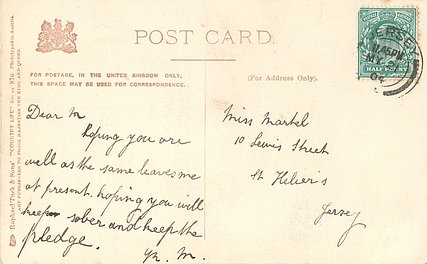 POST CARD.
FOR POSTAGE, IN THE UNITED KINGDOM ONLY,
THIS SPACE MAY BE USED FOR CORRESPONDENCE.
(For Address Only).
HALF PENNY
JERSEY
04
Raphael Tuck & Sons' "COUNTRY LIFE"
ART PUBLISHERS TO THEIR MAJESTIES THE KING AND QUEEN.
Dear M
Hoping you are
well as the same leaves me
at present. hoping you will
keep sober and keep the
pledge.
Yr. M.
Miss Martel
10 Lewis Street
St Helier's
Jersey